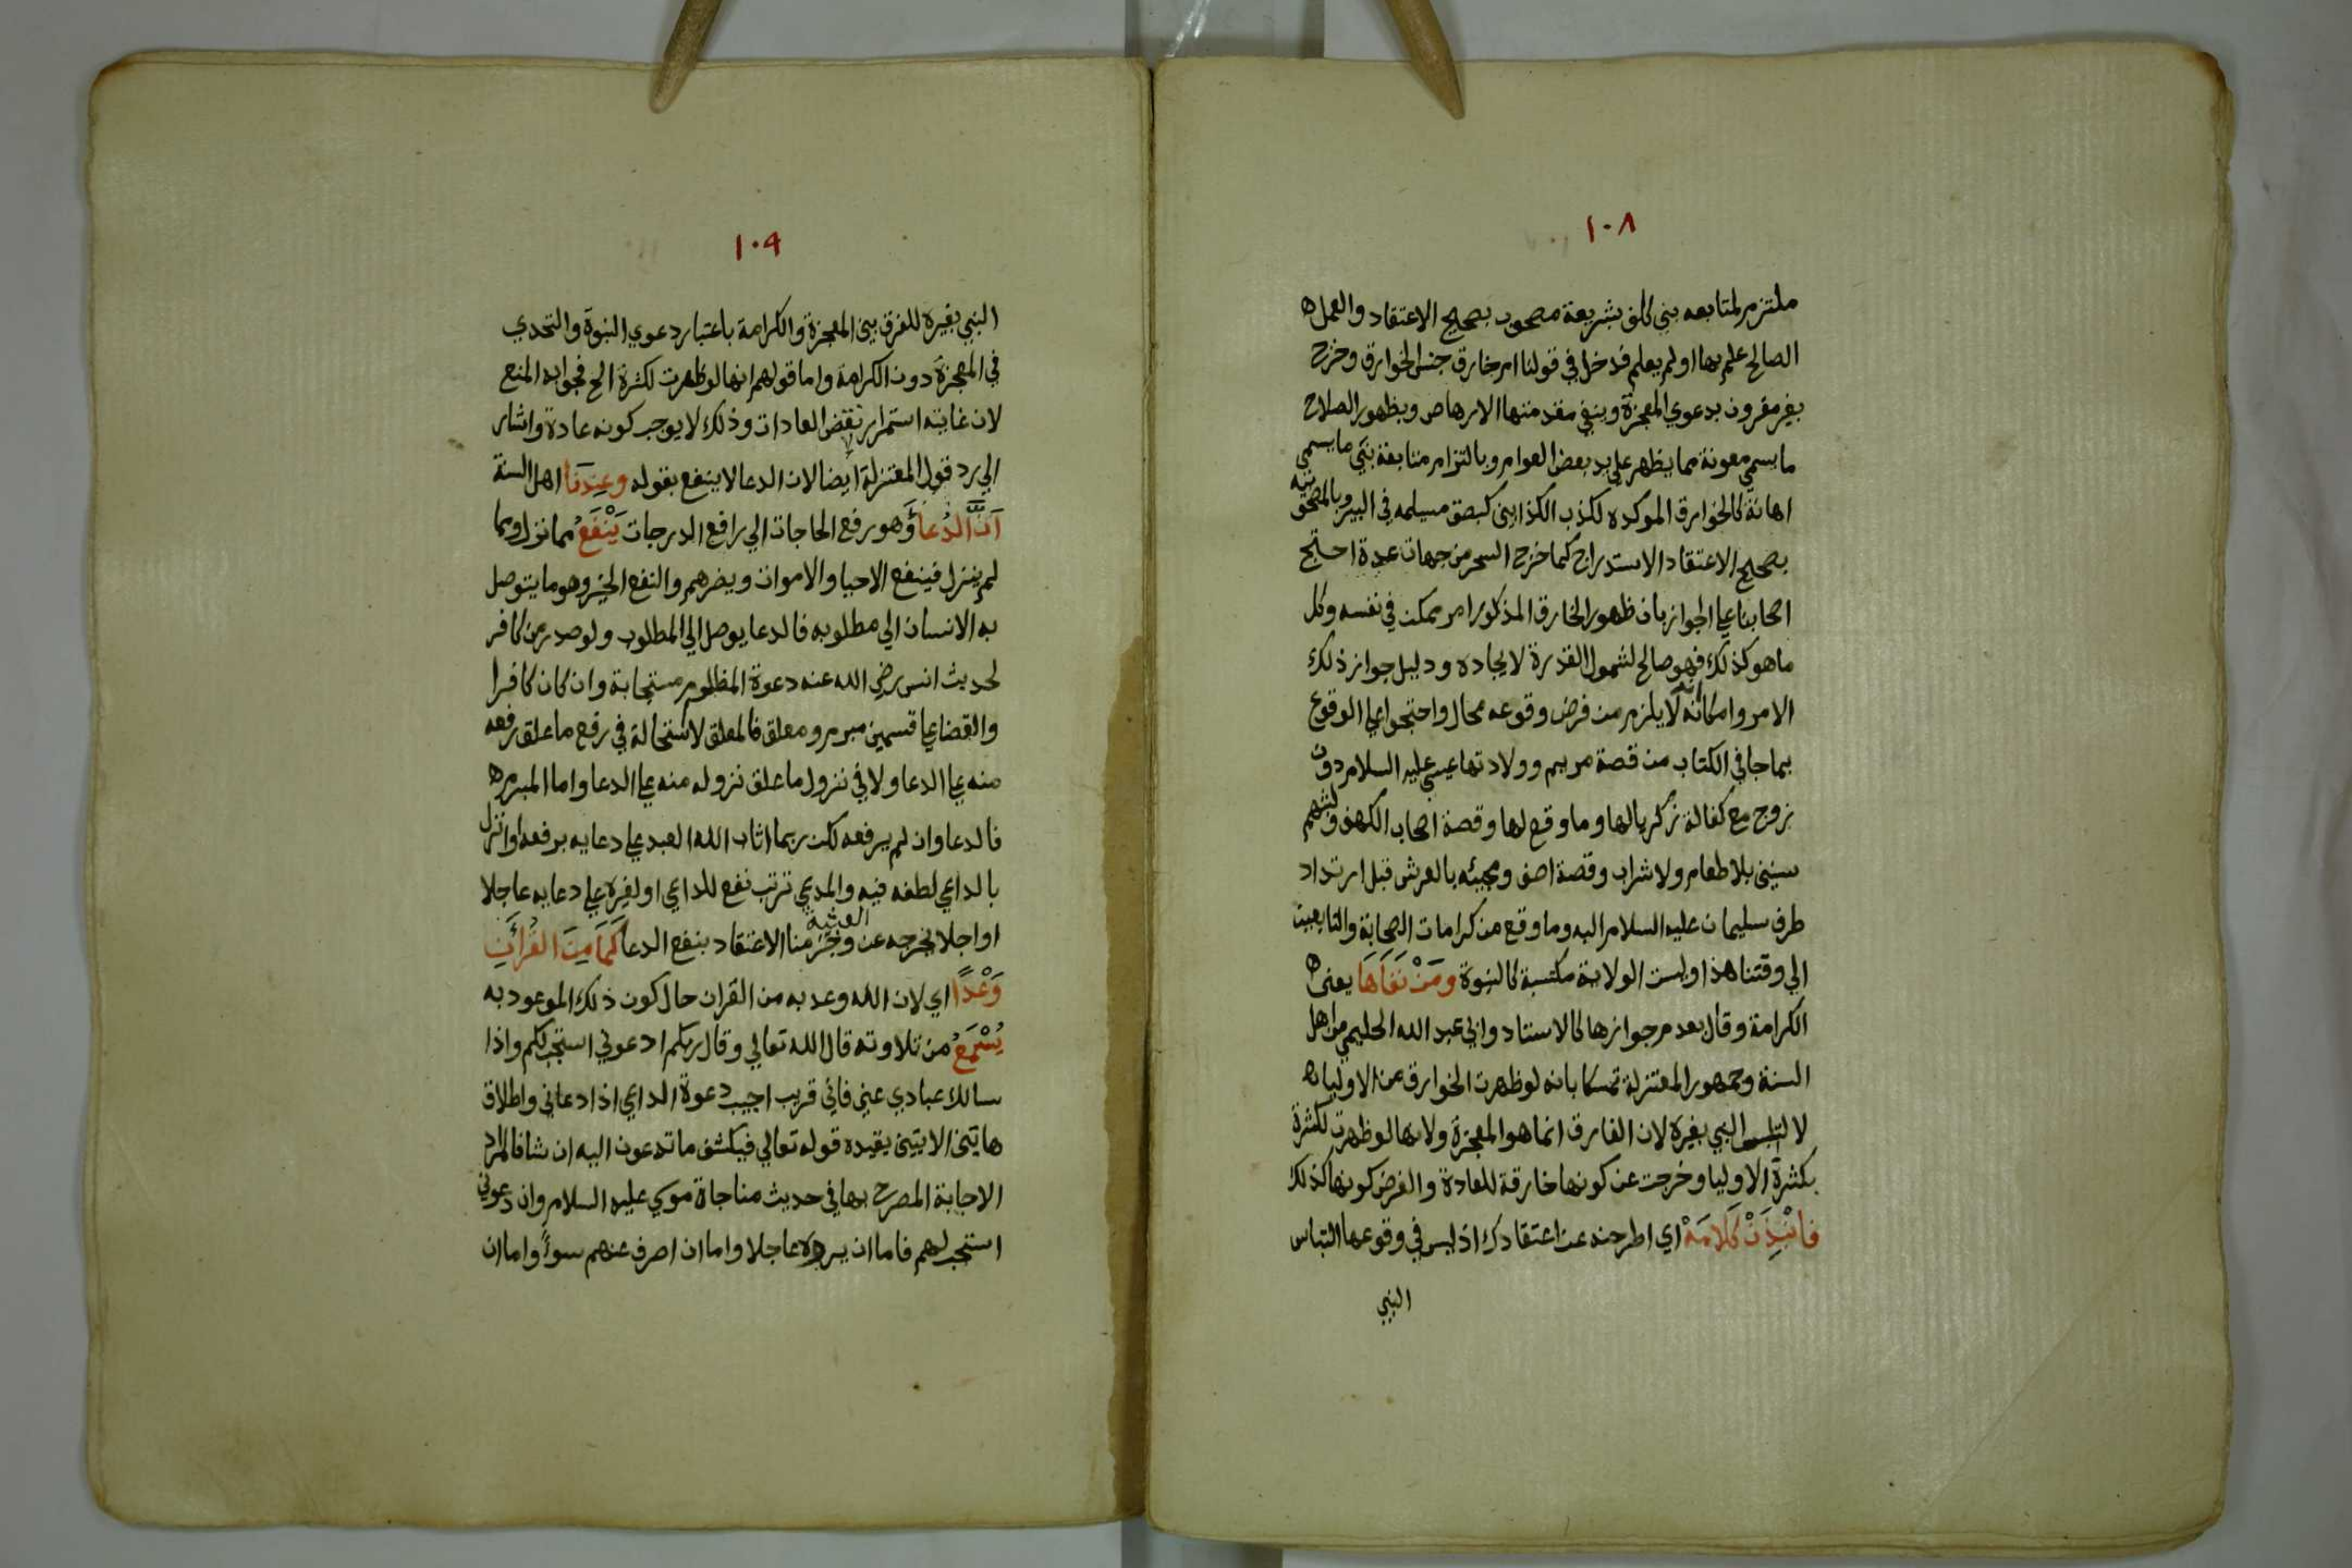 ١٠٨
ملتزم لمتابعه نبي كلف بشريعة مصحوب بصحيح الاعتقاد والعمل
الصالح علم بها اولم يعلم فدخل في قولنا امر خارق جنس الخوارق وخرج
بغير مقرون بدعوي المعجزة وبنفي مقدمتها الارهاص وبظهور الصلاح
ما يسمي معونة مما يظهر علي يد بعض العوام وبالتزام متابعة نبي ما يسمي
اهانة كالخوارق الموكده لكذب الكذابين كبصق مسيلمه في البير وبالمصحوبية
بصحيح الاعتقاد الاستدراج كما خرج السحر من جهات عدة احتج
اصحابنا علي الجواز بان ظهور الخارق المذكور امر ممكن في نفسه وكل
ما هو كذلك فهو صالح لشمول القدرة لايجاده ودليل جواز ذلك
الامر وامكانه انه لا يلزم من فرض وقوعه محال واحتجوا علي الوقوع
بما جا في الكتاب من قصة مريم وولادتها عيسي عليه السلام دون
زوج مع كفالة زكريا لها وما وقع لها وقصة اصحاب الكهف ولبثهم
سنين بلا طعام ولا شراب وقصة اصف ومجيئه بالعرش قبل ارتداد
طرف سليمان عليه السلام اليه وما وقع من كرامات الصحابة والتابعين
الي وقتنا هذا وليست الولاية مكتسبة كالنبوة ومَنْ نَفَاهَا يعني
الكرامة وقال بعدم جوازها كالاستاد وابي عبد الله الحليمي من اهل
السنة وجمهور المعتزلة تمسكا بانه لو ظهرت الخوارق من الاوليا
لا لتبس النبي بغيره لان الفارق انما هو المعجزة ولانها لو ظهرت لكثرة
بكثرة الاوليا وخرجت عن كونها خارقة للعادة والفرض كونها كذلك
فانْبِذَنْ كَلَامَهْ اي اطرحنه عن اعتقادك اذ ليس في وقوعها التباس
النبي
١٠٩
النبي بغيره للفرق بين المعجزة والكرامة باعتبار دعوي النبوة والتحدي
في المعجزة دون الكرامة واما قولهم انها لو ظهرت لكثرة الخ فجوابه المنع
لان غايته استمرار نقض العادات وذلك لا يوجب كونه عادة واشار
الي رد قول المعتزلة ايضا لان الدعا لا ينفع بقوله وعِندَنا اهل السنة
اَنَّ الدُعاءَ وهو رفع الحاجات الي رافع الدرجات يَنْفَعُ مما نزل ومما
لم ينزل فينفع الاحيا والاموات ويضرهم والنفع الخير وهو ما يتوصل
به الانسان الي مطلوبه فالدعا يوصل الي المطلوب ولو صدر من كافر
لحديث انس رضي الله عنه دعوة المظلوم مستجابة وان كان كافرا
والقضا علي قسمين مبرم ومعلق فالمعلق لا استحالة في رفع ما علق رفعه
منه علي الدعا ولا في نزول ما علق نزوله منه علي الدعا واما المبرم
فالدعا وان لم يرفعه لكن ربما اثاب الله العبد علي دعايه برفعه او انزل
بالداعي لطفه فيه والمدعي ترتب نفع للداعي او لغيره علي دعايه عاجلا
او اجلا يخرجه عن العبثية وجزمنا الاعتقاد بنفع الدعا كَمَا مِنَ القُرآنِ
وَعْدًا اي لان الله وعد به من القران حال كون ذلك الموعود به
يُسْمَعُ من تلاوته قال الله تعالي وقال ربكم ادعوني استجب لكم واذا
سالك عبادي عني فاني قريب اجيب دعوة الداعي اذا دعاني واطلاق
هاتين الايتين يقيده قوله تعالي فيكشف ما تدعون اليه ان شا فالمراد
الاجابة المصرح بها في حديث مناجاة موسي عليه السلام وان دعوني
استجب لهم فاما ان يروه عاجلا واما ان اصرف عنهم سوءً واما ان